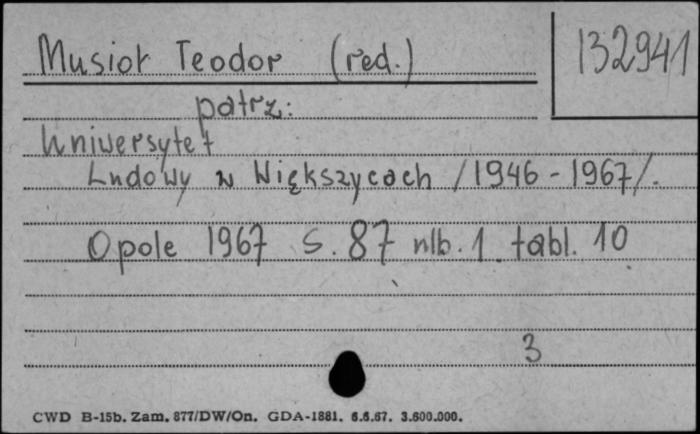 Musioł Teodor (red.) 132941
patrz:
Uniwersytet
Ludowy w Większycach /1946-1967/.
Opole 1967 S. 87 nlb. 1. tabl. 10
3
CWD B-15b. Zam. 877/DW/On. GDA-1881. 6.6.67. 3.600.000.